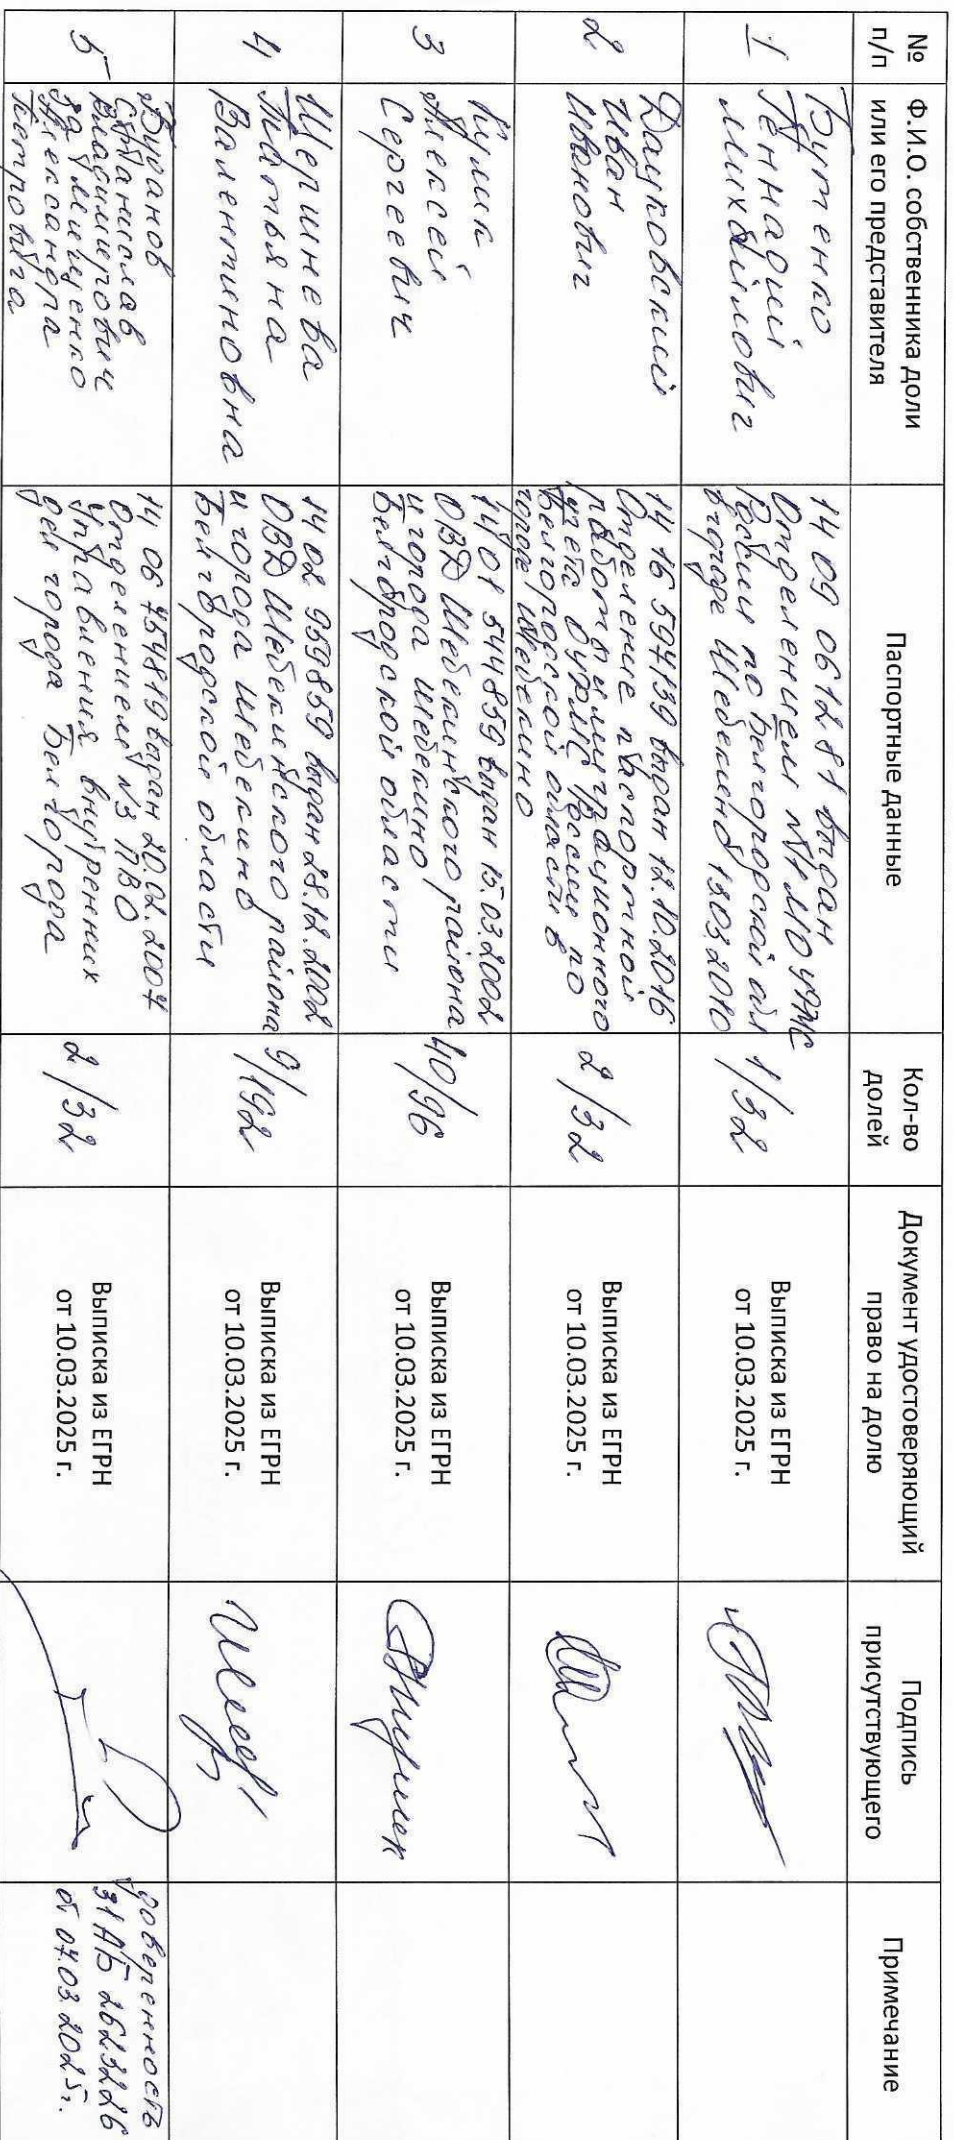 №
п/п
Ф.И.О. собственника доли
или его представителя
Паспортные данные
Кол-во
долей
Документ удостоверяющий
право на долю
Подпись
присутствующего
Примечание
1
Бутенко
Геннадий
Михайлович
14 09 061281 выдан
Отделением №1 МО УФМС
России по Белгородской обл
в городе Шебекино 18.03.2010
1/32
Выписка из ЕГРН
от 10.03.2025 г.
2
Дацковский
Иван
Иванович
14 16 594139 выдан 12.10.2016
Отделение паспортной
работы и миграционного
учета ОУФМС России по
Белгородской области в
городе Шебекино
2/32
Выписка из ЕГРН
от 10.03.2025 г.
3
Алексей
Сергеевич
14 01 544859 выдан 15.03.2002
ОВД Шебекинского района
и города Шебекино
Белгородской области
40/96
Выписка из ЕГРН
от 10.03.2025 г.
4
Шершнева
Татьяна
Валентиновна
14 02 959859 выдан 28.12.2002
ОВД Шебекинского района
и города Шебекино
Белгородской области
9/192
Выписка из ЕГРН
от 10.03.2025 г.
5
Буранов
Станислав
Владимирович
за
Александра
Петровича
14 06 754819 выдан 20.02.2007
Отделением №3 ПВО
Управления внутренних
дел города Белгорода
2/32
Выписка из ЕГРН
от 10.03.2025 г.
доверенность
31 АБ 2623226
от 07.03.2025г.